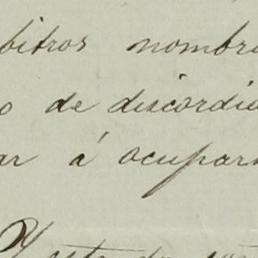 bitros nombra
o de discordia
ar á ocupars